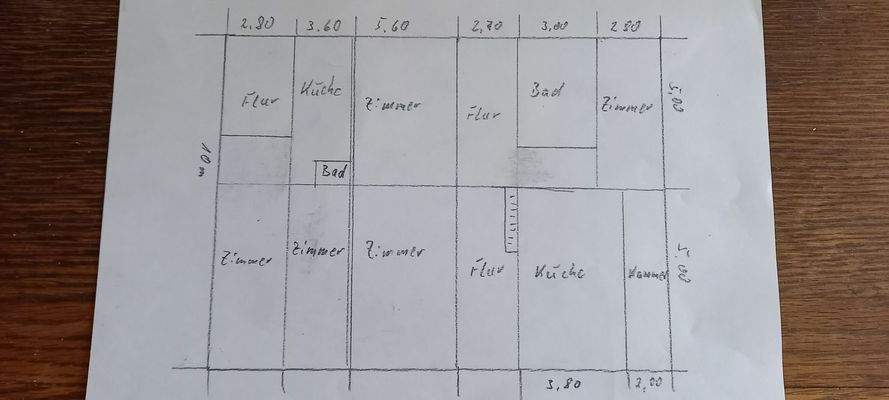 2,80 3,60 5,60 2,70 3,00 2,80
Flur Küche Zimmer Flur Bad Zimmer 5,00
10 m
Bad
Zimmer Zimmer Zimmer Flur Küche Kammer 5,00
3,80 2,00